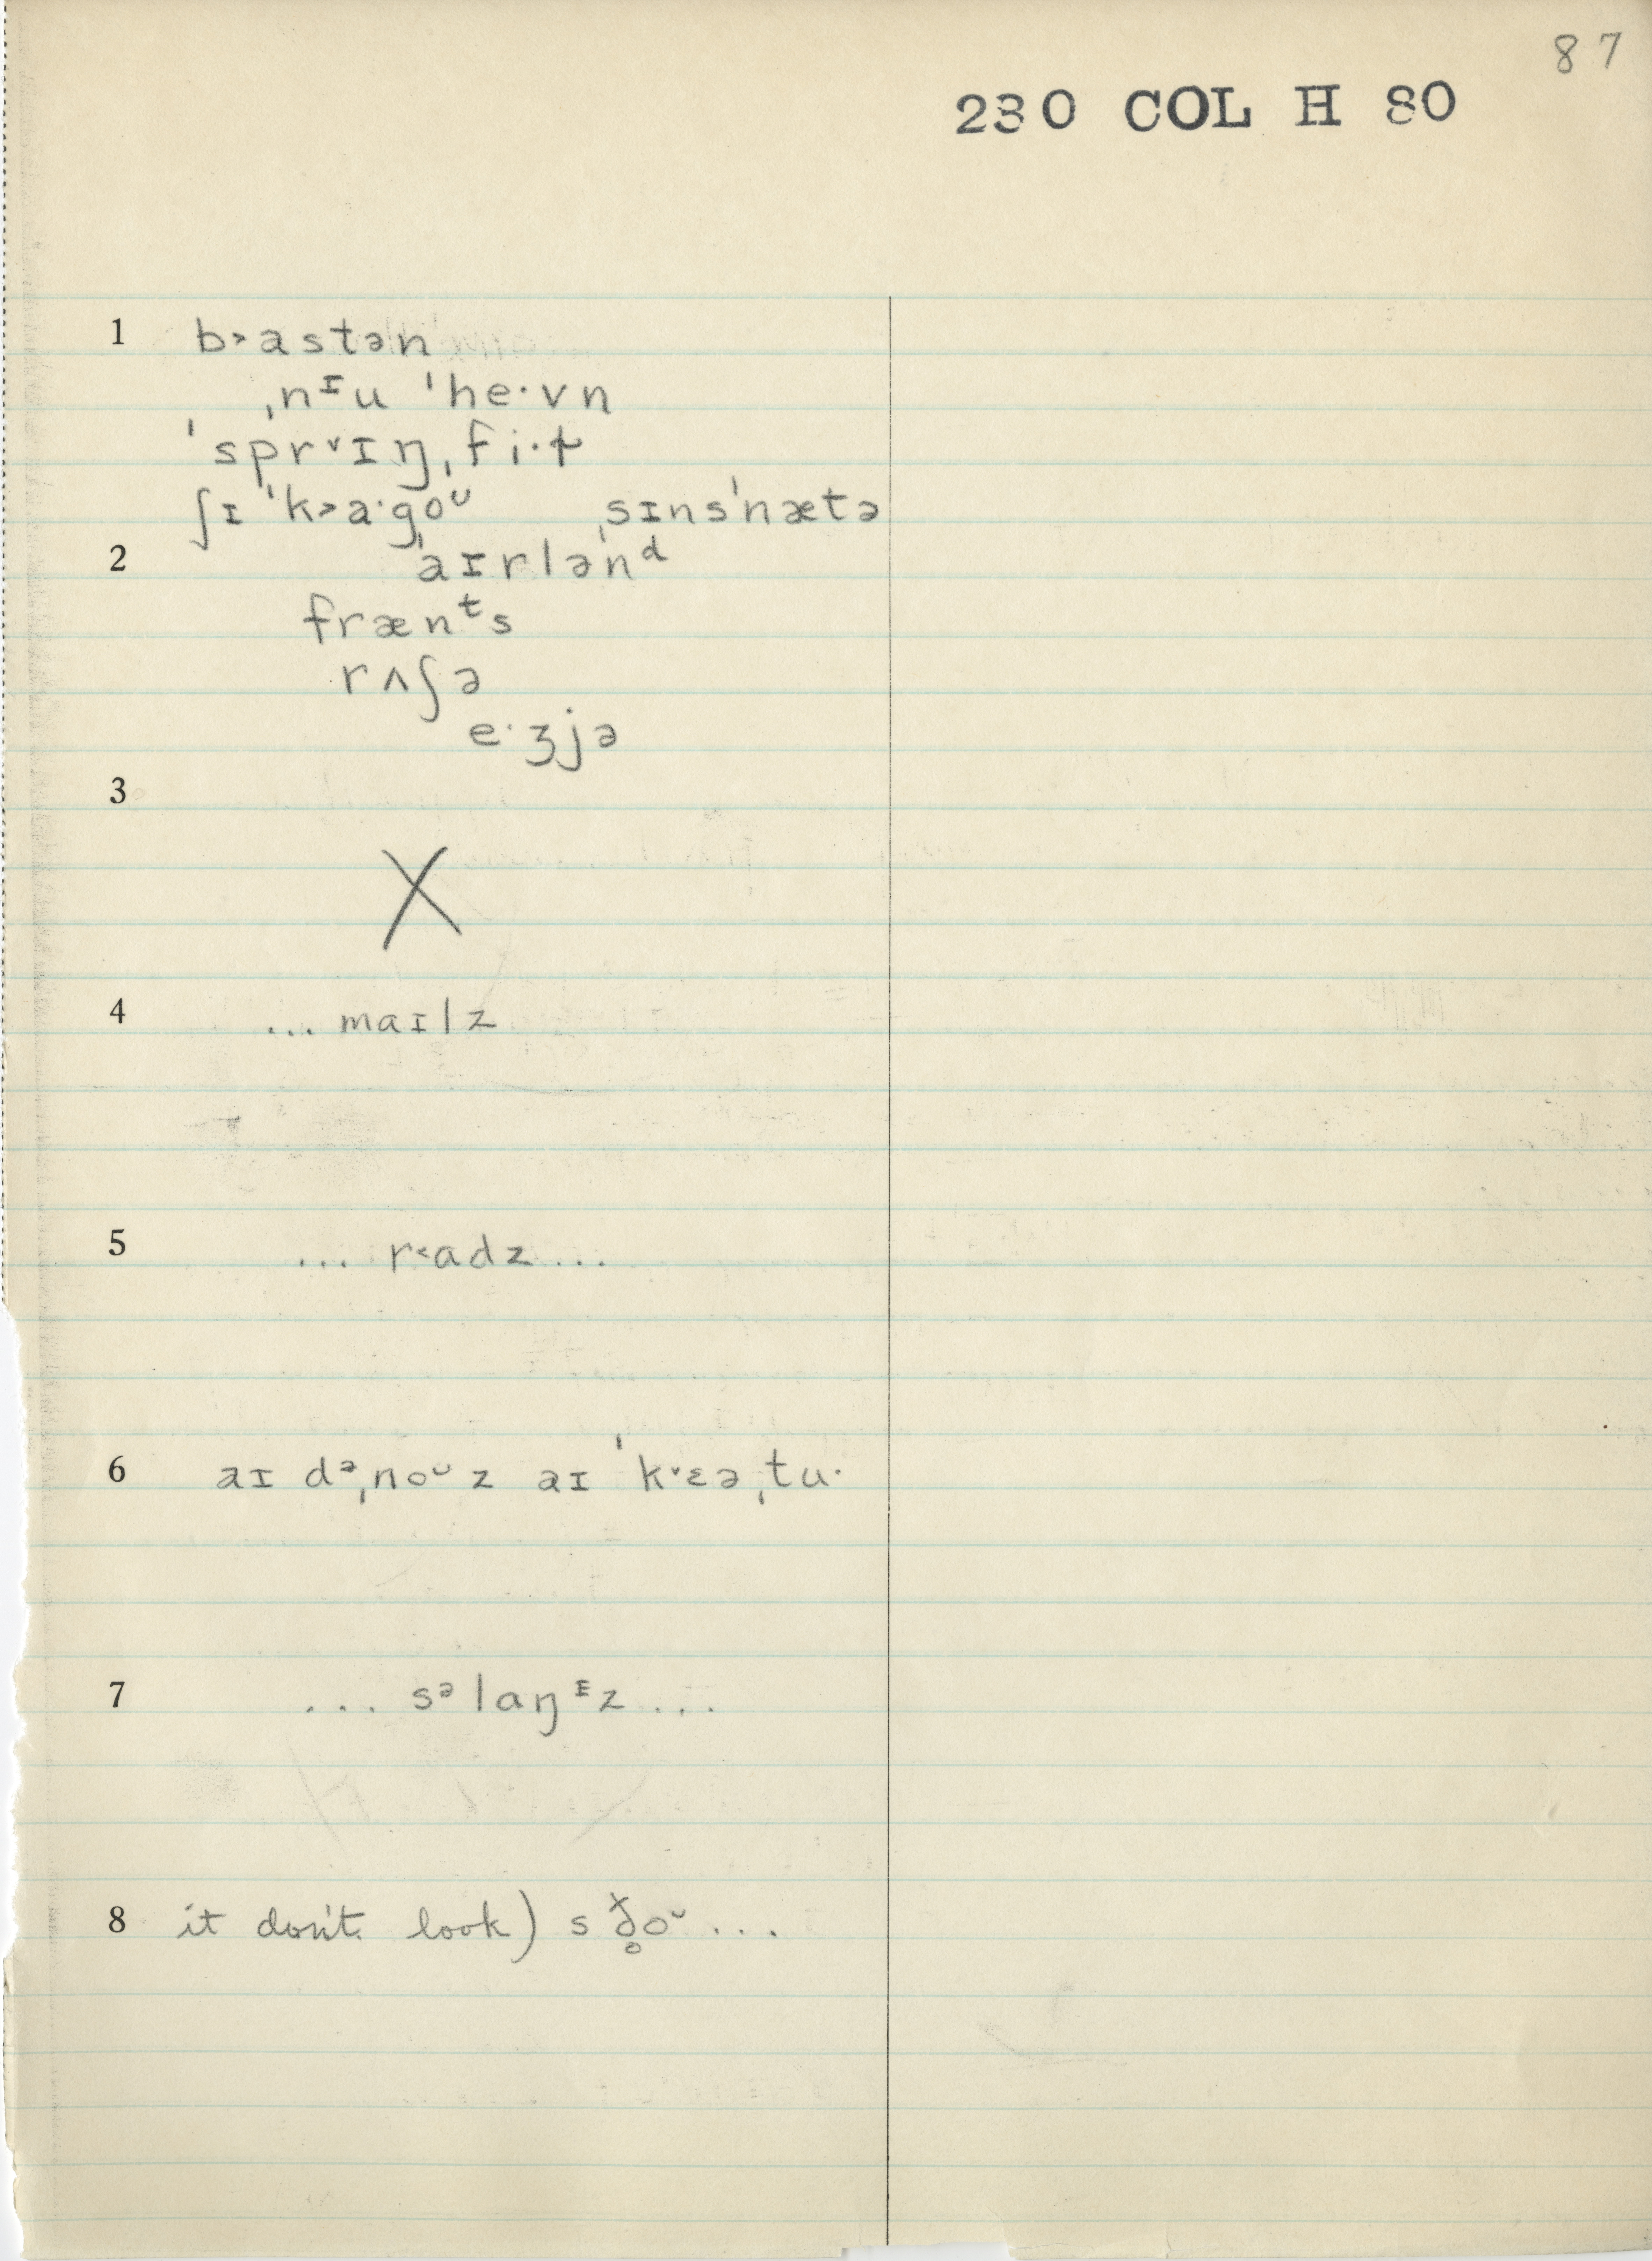 87
230 COL H 80
1 b˃astən
ˌnɪu ˈhe·vn
ˈsprᵛɪŋˌfi·ɫ
ʃɪ ˈk˃a·ˌgoᶷ ˌsɪnsˈnætə
2 aɪrlənᵈ
frænᵗs
rʌʃə
e·ʒjə
3
X
4 ... maɪlz
5 ... r˂adz ...
6 aɪ dᵊˌnoᶷz aɪ ˈkᵛɛəˌtu·
7 ... sᵊlaŋᶦz ...
8 it don't look) s ð̥̆oᶷ ...